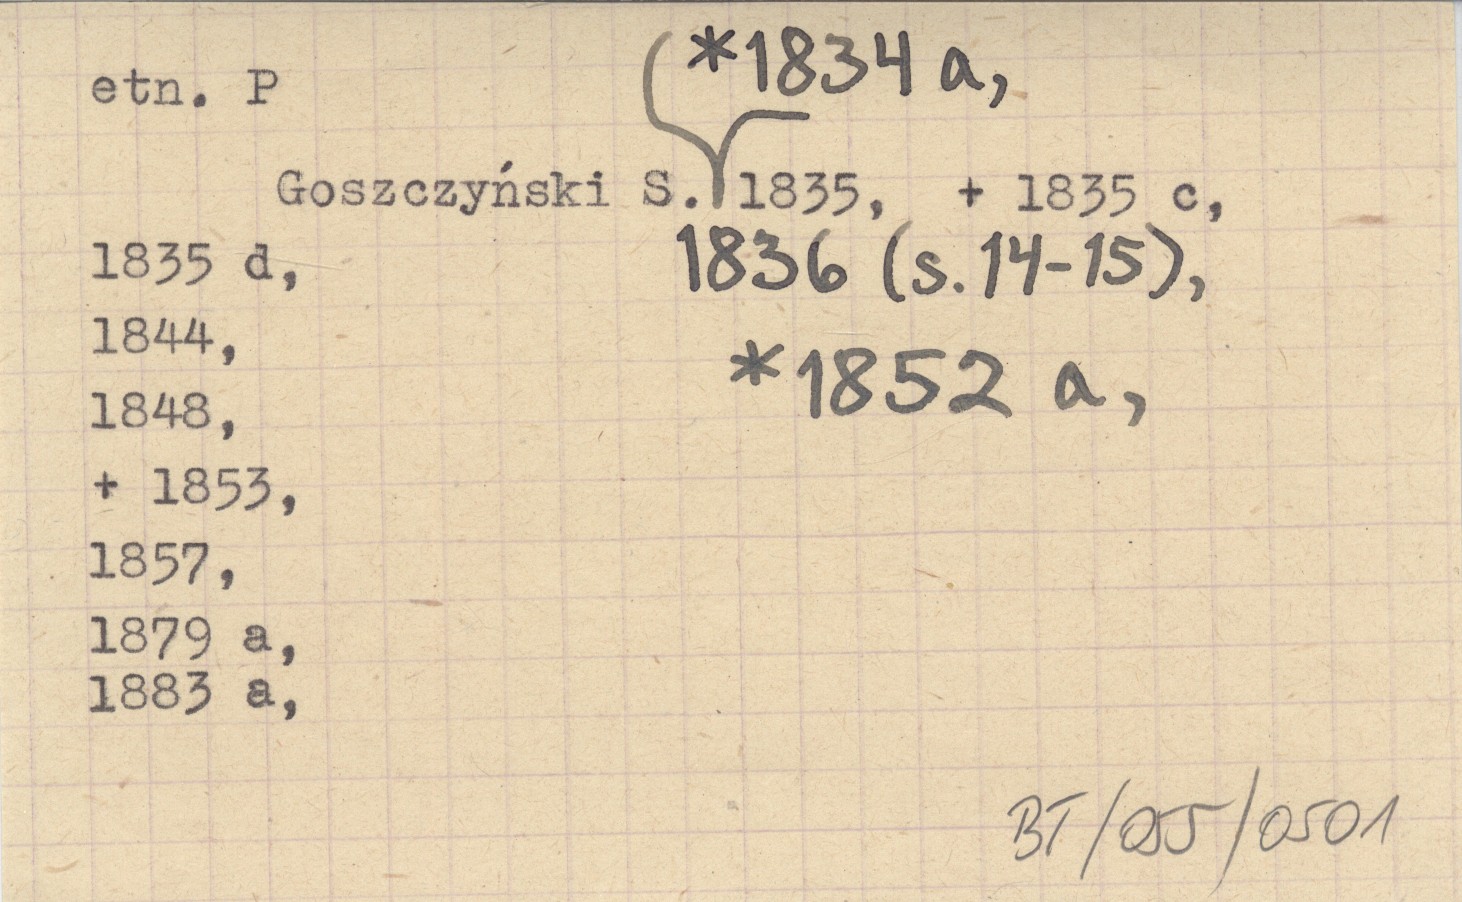 *1834 a,
etn. P
Goszczyński S. 1835, + 1835 c,
1835 d, 1836 (s.14-15),
1844,
*1852 a,
1848,
+ 1853,
1857,
1879 a,
1883 a,
BT/055/0501